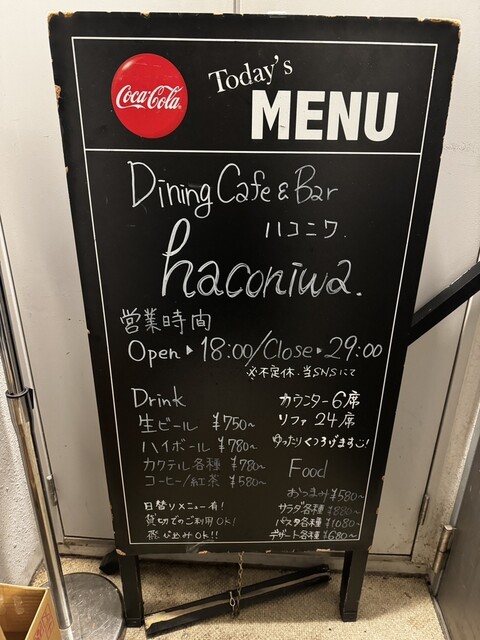 Coca-Cola
Today's
MENU
Dining Cafe & Bar
ハコニワ.
haconiwa.
営業時間
Open▶18:00/Close▶29:00
※不定休.当SNSにて
Drink
生ビール ¥750~
ハイボール ¥780~
カクテル各種 ¥780~
コーヒー/紅茶 ¥580~
日替りメニュー有!
貸切でのご利用OK!
飛び込みOK!!
カウンター6席
ソファ24席
ゆったりくつろげます!
Food
おつまみ¥580~
サラダ各種¥880~
パスタ各種¥1080~
デザート各種¥680~